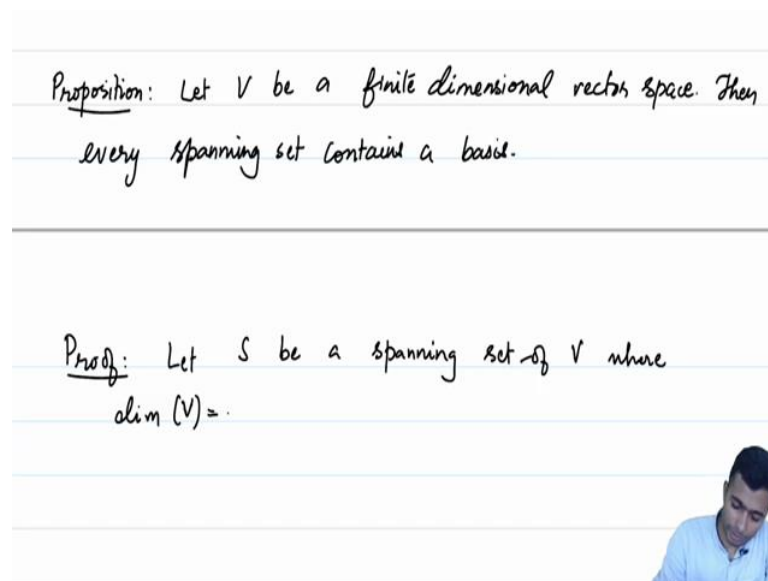 Proposition: Let V be a finite dimensional vector space. Then
every spanning set contains a basis.
Proof: Let S be a spanning set of V where
dim (V) =